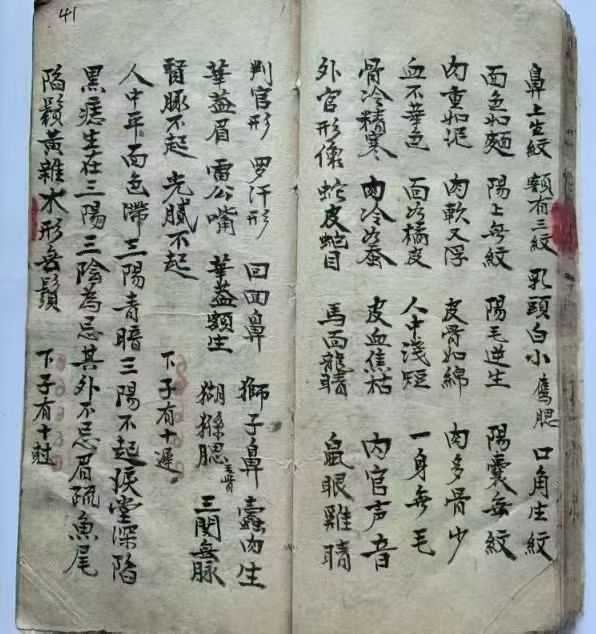 41
鼻上生紋 頦有三紋 乳頭白小 鷹腮 口角生紋
面色如麵 陽上無紋 陽毛逆生 陽囊無紋
肉重如泥 肉軟又浮 皮骨如綿 肉多骨少
血不華色 面如橘皮 人中淺短 一身無毛
骨冷精寒 肉冷如蚕 皮血焦枯 內官声音
外官形像 蛇皮蛇目 馬面龍睛 鼠眼雞睛
判官形 罗汗形 回面鼻 獅子鼻 蠹肉生
華蓋眉 雷公嘴 華蓋額生 猢猻腮 三関無脉
腎脉不起 先腻不起 下子有十遲
人中平 面色滯 三陽青暗 三陽不起 痰堂深陷
黑痣生在三陽三陰為忌其外不忌眉疏魚尾
陷鬚黃雜 水形無鬚 下子有十尅